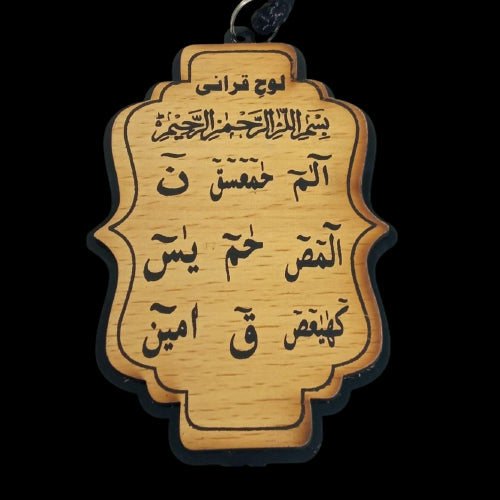 لوح قرانی
بِسْمِ اللّٰهِ الرَّحْمٰنِ الرَّحِيْمِ
الٓمٓ حٰمٓعٓسٓقٓ نٓ
الٓمٓصٓ حٰمٓ يٰسٓ
كٓهٰيٰعٓصٓ قٓ امين